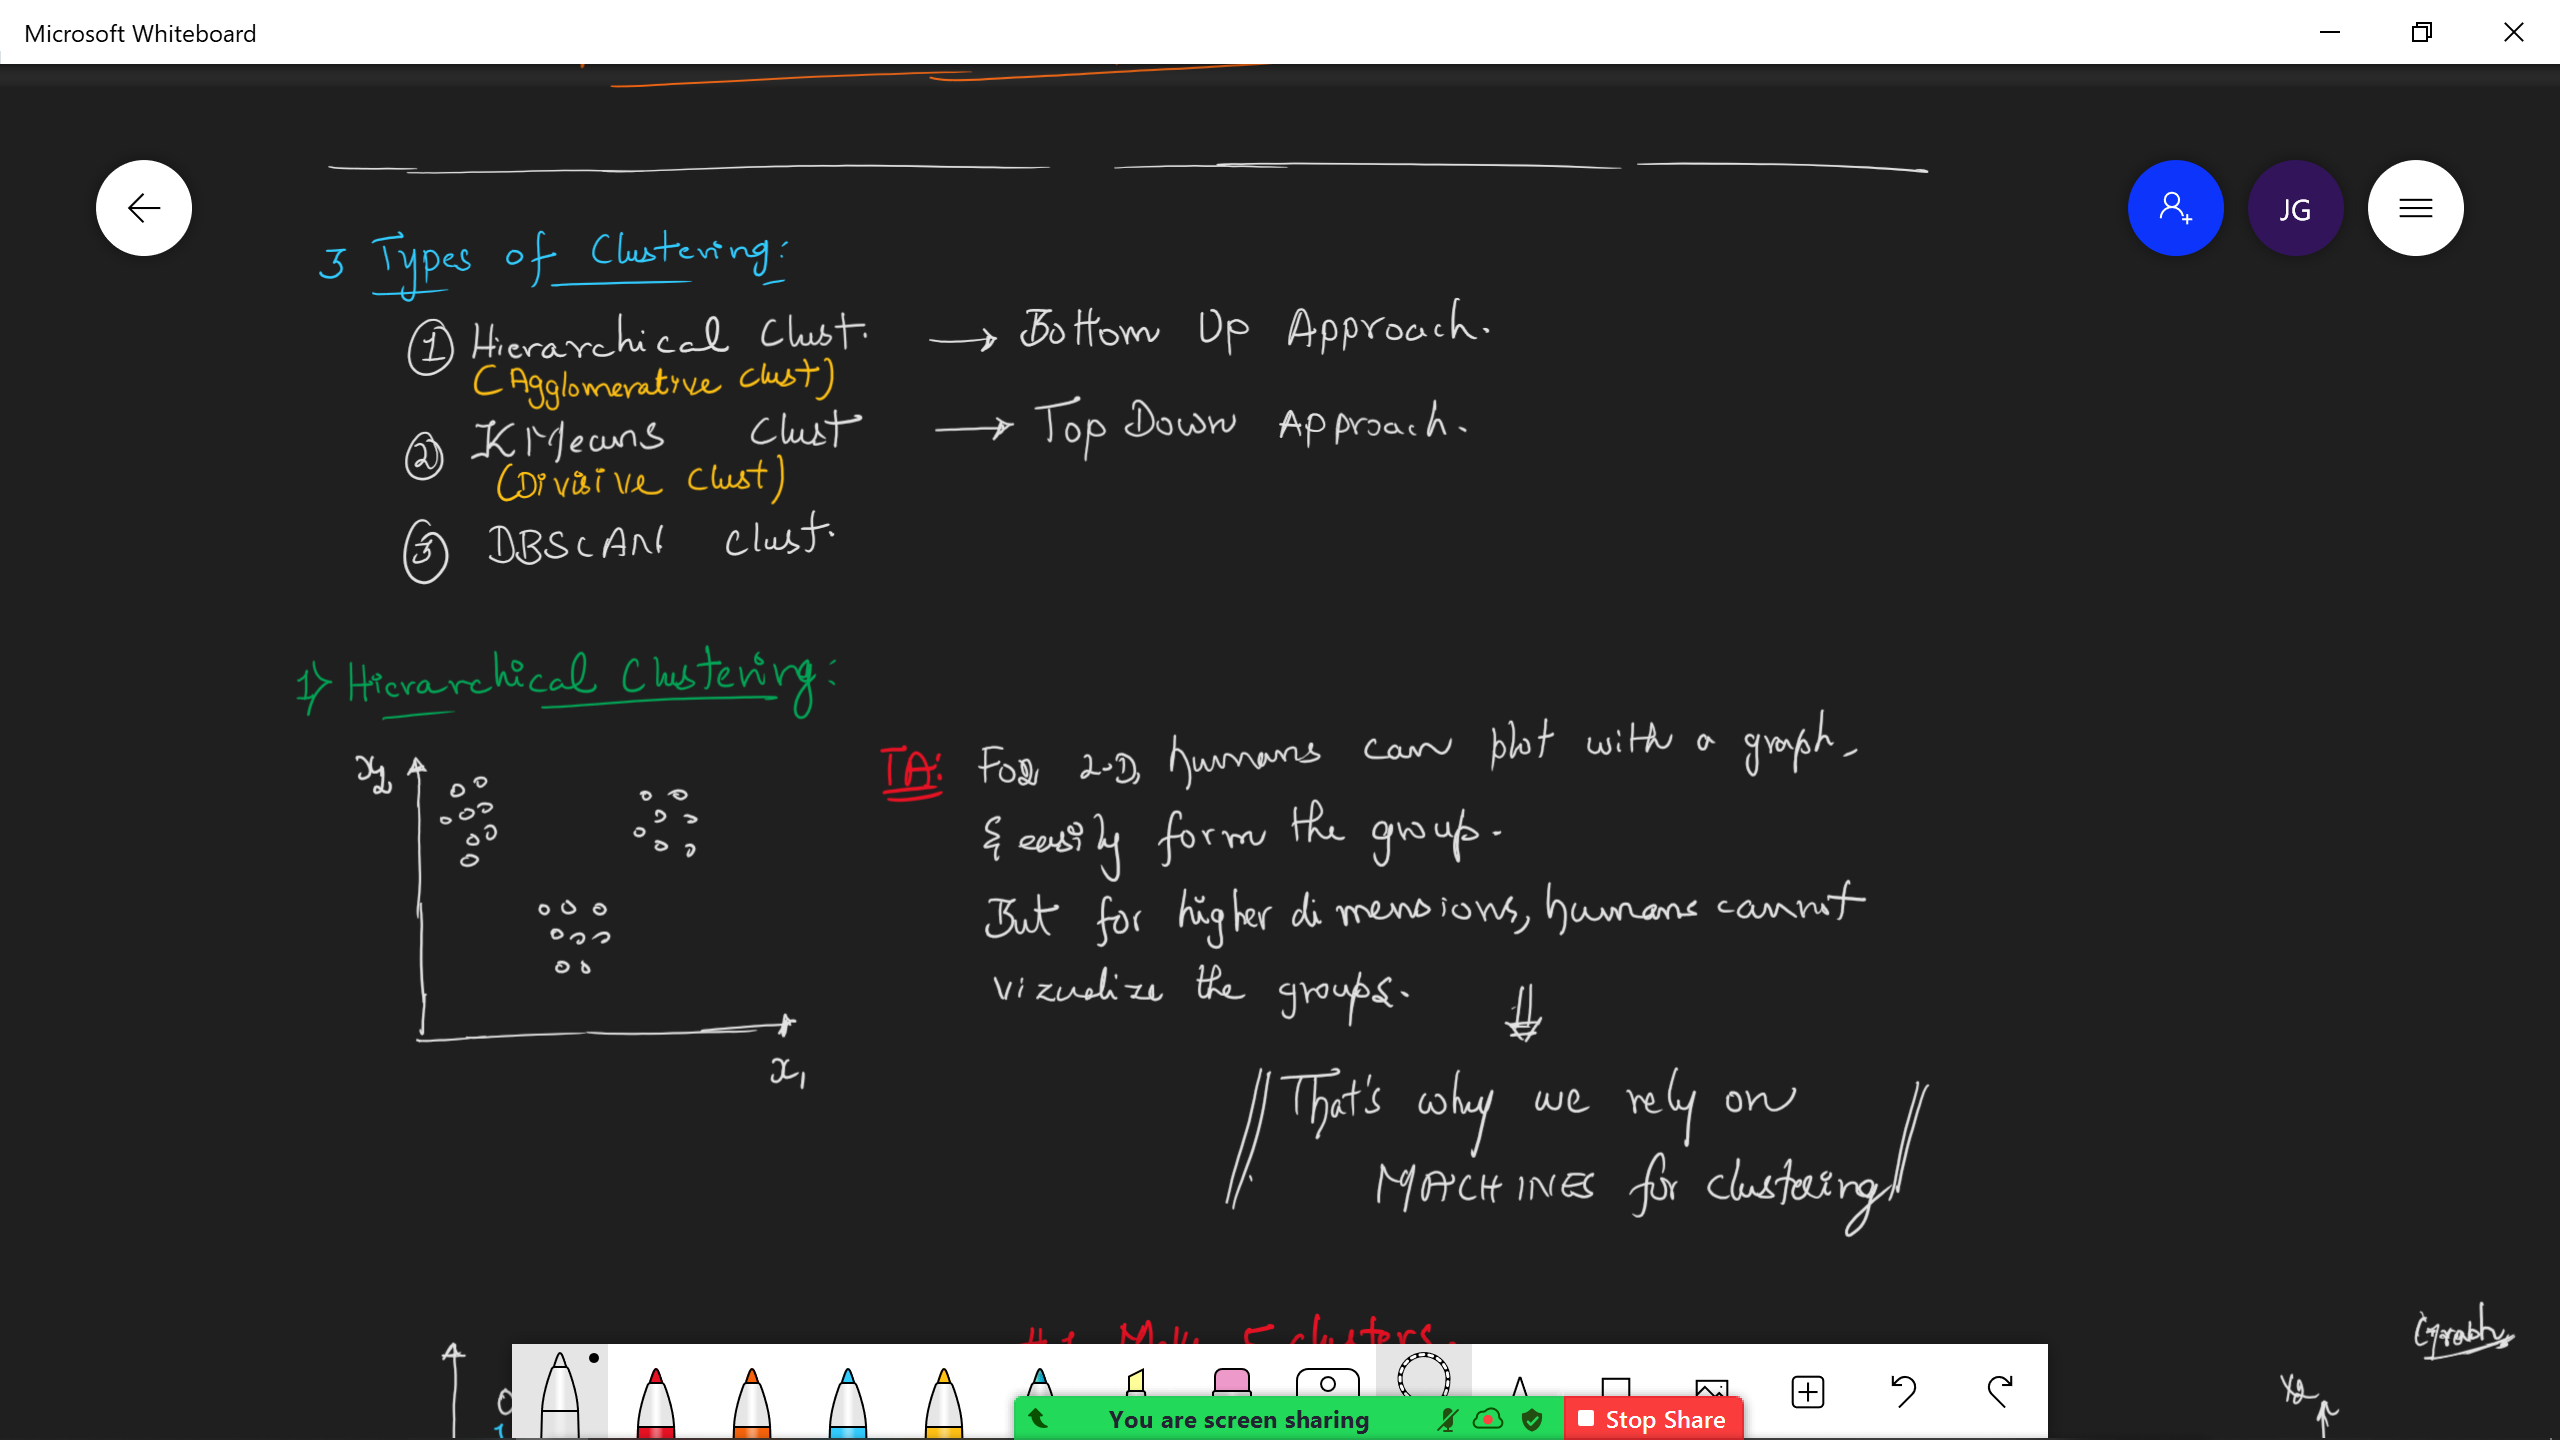 Microsoft Whiteboard
JG
3 Types of Clustering:
1 Hierarchical Clust. → Bottom Up Approach.
(Agglomerative Clust)
2 KMeans Clust → Top Down Approach.
(Divisive Clust)
3 DBSCAN Clust.
1> Hierarchical Clustering:
x2
x1
TA: For 2-D, humans can plot with a graph.
& easily form the group.
But for higher dimensions, humans cannot
vizualize the groups.
That's why we rely on
MACHINES for clustering
5 clusters.
Graph
x2
You are screen sharing
Stop Share